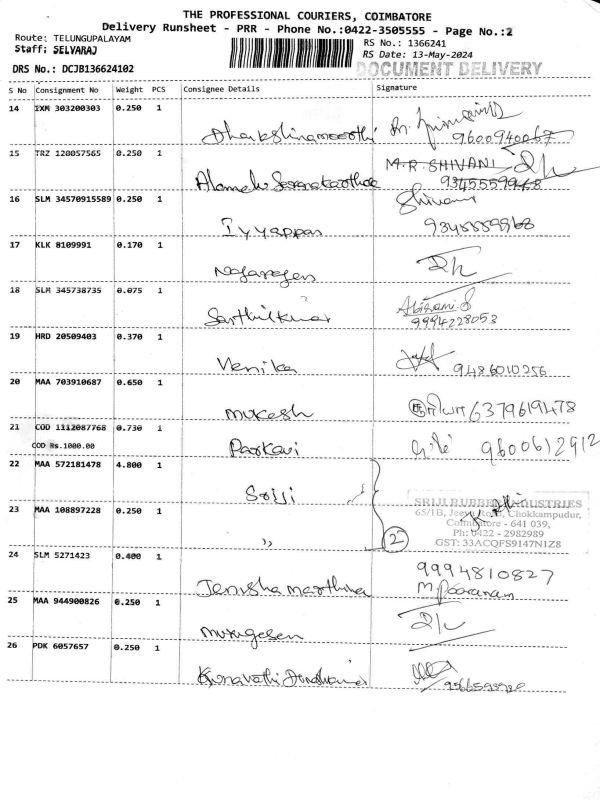 THE PROFESSIONAL COURIERS, COIMBATORE
Delivery Runsheet - PRR - Phone No.:0422-3505555 - Page No.:2
Route: TELUNGUPALAYAM
Staff: SELVARAJ
RS No.: 1366241
RS Date: 13-May-2024
DRS No.: DCJB136624102
DOCUMENT DELIVERY
S No Consignment No Weight PCS Consignee Details Signature
14 IXM 303200303 0.250 1
Dhakshinamoorthi
9600940067
15 TRZ 120057565 0.250 1
M.R. SHIVANI
9345559968
16 SLM 34570915589 0.250 1
Shivani
Iyyappan 9345559968
17 KLK 8109991 0.170 1
Nagarajen
18 SLM 345738735 0.075 1
Senthilkumar
9994228053
19 HRD 20509403 0.370 1
Venika 9486010256
20 MAA 703910687 0.650 1
Mukesh 6379619478
21 COD 1112087768 0.730 1
COD Rs.1000.00
Parkavi 9600612912
22 MAA 572181478 4.800 1
Sriji
23 MAA 108897228 0.250 1
SRIJI RUBBER INDUSTRIES
65/1B, Chokkampudur,
Coimbatore - 641 039,
Ph: 0422 - 2982989
GST: 33ACQFS9147N1Z8
,, 2
24 SLM 5271423 0.400 1
9994810827
M. Pooranam
25 MAA 944900826 0.250 1
Murugesen
26 PDK 6057657 0.250 1